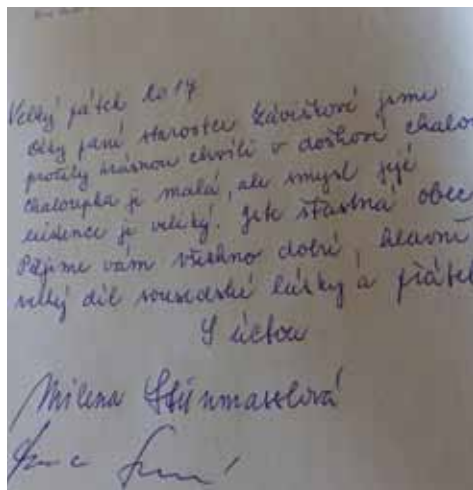 Velký pátek 2017
díky paní starostce Závišková jsme
prožily krásnou chvíli v doškové chalou
chaloupka je malá, ale smysl její
existence je veliký. Jste šťastná obec
Přejeme vám všechno dobré, hlavně
velký díl sousedské lásky a přátel
S úctou
Milena Steinmasslová